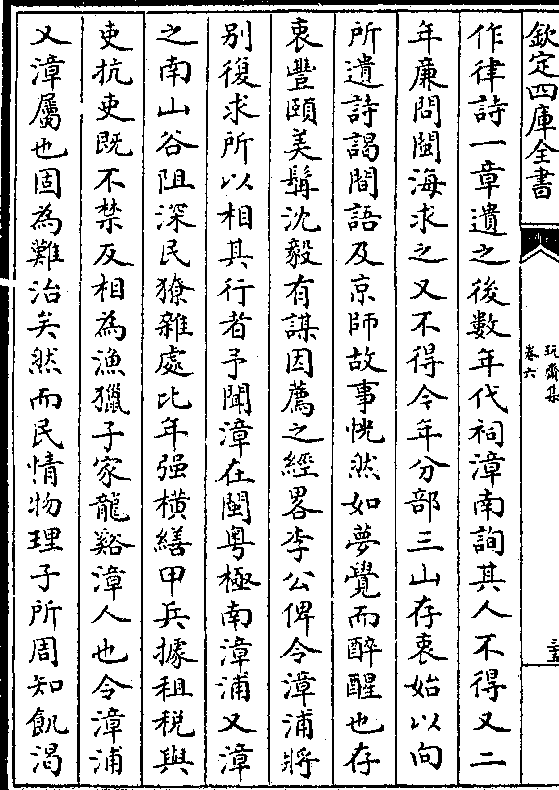 欽定四庫全書
玩齋集
卷六
作律詩一章遺之後數年代祠漳南詢其人不得又二
年廉問閩海求之又不得今年分部三山存衷始以向
所遺詩謁間語及京師故事恍然如夢覺而醉醒也存
衷豐頤美髯沈毅有謀因薦之經畧李公俾令漳浦將
别復求所以相其行者予聞漳在閩粤極南漳浦又漳
之南山谷阻深民獠雜處比年强横繕甲兵據租税與
吏抗吏既不禁反相為漁獵子家龍谿漳人也令漳浦
又漳屬也固為難治矣然而民情物理子所周知飢渴